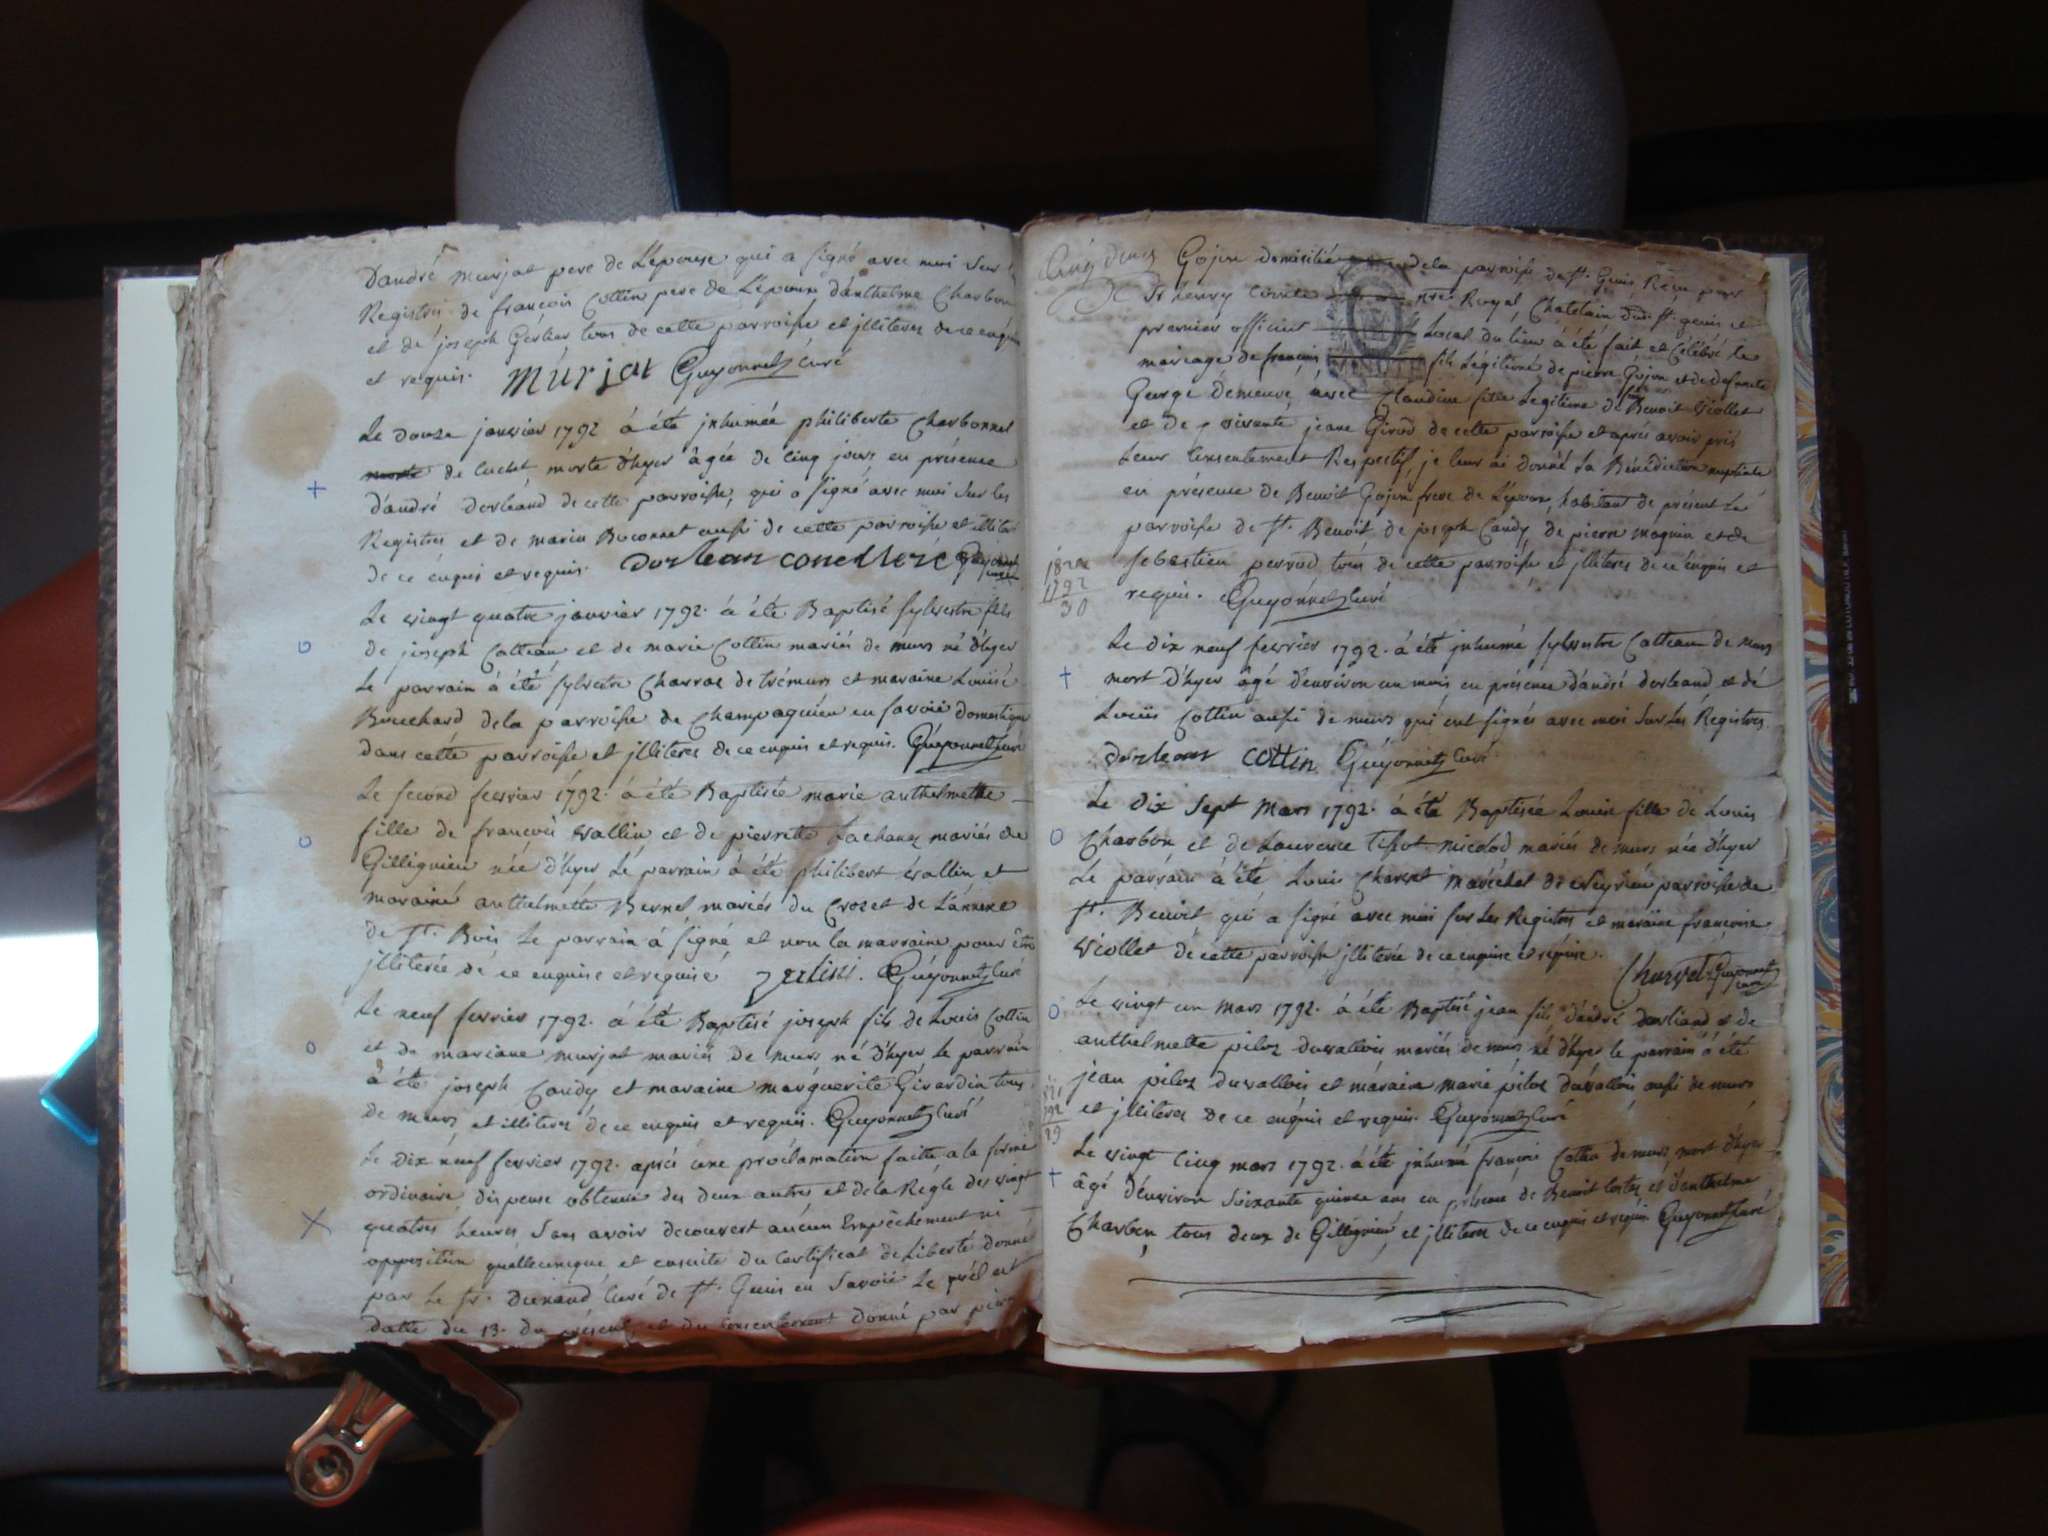 D'andré murjat pere de L'épouse qui a signé avec moi sur
Registres de françois Cottin pere de L'époux d'anthelme Charbon
et de joseph Gerlier tous de cette parroisse et jlliteres de ce enquis
et requis. Murjat Guyonnet curé
Le douze janvier 1792 á été jnhumée philiberte Charbonnel
de cuchet morte d'hyer âgée de cinq jours en présence
d'andré dorleand de cette parroisse, qui a signé avec moi sur les
Registres et de marin Buconnet aussi de cette parroisse et illiteré
de ce enquis et requis. Dorlean Guyonnet curé
Le vingt quatre janvier 1792. á été Baptisé sylvestre fils
de joseph Catteau et de marie Cottin mariés de murs né d'hyer
Le parrain á été sylvestre Charras de trémurs et maraine Louise
Bouchard dela parroisse de Champagnieu en savoie domestique
dans cette parroisse et jlliteres de ce enquis et requis. Guyonnet curé
Le second fevrier 1792. á été Baptisée marie anthelmette
fille de francois vallin et de pierrette Lachanez mariés de
Gillignieu née d'hyer Le parrain á été philibert vallin et
maraine anthelmette mariés du Crozet de L'annexe
de st. Bois Le parrain á signé et non la marraine pour être
jlliterée de ce enquise et requise Guyonnet curé
Le neuf fevrier 1792. á été Baptisé joseph fils de Louis Cottin
et de mariane murjat mariés de murs né d'hyer Le parrain
á été joseph Candy et maraine marguerite Girardin tous
de murs et illiteres de ce enquis et requis. Guyonnet curé
Le dix neuf fevrier 1792. aprés une proclamation faitte a la forme
ordinaire dispense obtenue des deux autres et de la Régle des vingt
quatres heures sans avoir decouvert aucun Empêchement ni
opposition quellecunque et ensuite du Certificat de Liberté donné
par Le sr. Curé de st. Genis en Savoie Le
datte du 13. du présent, et du consentement donné par pierre
Cinq Deuz Gojon domicilié dela parroisse de st. Genis Reçu par
Me. henry ntre. Royal, Chatelain dud. st. genis et
premier officier Local du lieu á été fait et Célébré le
mariage de françois fils Légitimé de pierre Gojon et de deffunte
George Demeure avec Claudine fille Legitime de Benoit Viollet
et de vivante jeane Girod de cette parroisse et aprés avoir pris
Leur Consentement Respectif, je leur ai donné La Bénédiction nuptiale
en présence de Benoit Gojon frere de L'époux, habitant de présent La
parroisse de st. Benoit de joseph Candy, de pierre maquin et de
sebastien perrod tous de cette parroisse et jlliteres de ce enquis et
requis. Guyonnet curé
1822
1792
30
Le dix neuf fevrier 1792. á été jnhumé sylvestre Catteau de murs
mort d'hyer âgé d'environ un mois en présence d'andré dorleand et de
Louis Cottin aussi de murs qui ont signés avec moi sur Les Registres.
dorleans Cottin Guyonnet curé
Le Dix sept Mars 1792. á été Baptisée Louise fille de Louis
Charbon et de Laurence mariés de murs née d'hyer
Le parrain á été Louis Charvet maréchal de veyrin parroisse de
st. Benoit qui a signé avec moi sur Les Registres et maraine françoise
Viollet de cette parroisse jlliterée de ce enquise et requise.
Charvet Guyonnet curé
Le vingt un mars 1792. á été Baptisé jean fils d'andré dorliand et de
anthelmette piloz duvallois mariés de murs né d'hyer le parrain á été
jean piloz duvallois et maraine marie piloz duvallois aussi de murs
et jlliteres de ce enquis et requis. Guyonnet curé
Le vingt Cinq mars 1792. á été jnhumé françois Cottin de murs mort d'hyer
âgé d'environ soixante quinze ans en présence de Benoit et d'anthelme
Charbon, tous deux de Gillignieu et jlliteres de ce enquis et requis Guyonnet curé